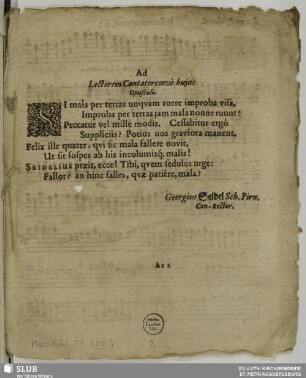 Ad
Lectorem Cantatoremvè hujus
Opusculi.
SI mala per terras unqvam ruere improba visa,
Improba per terras jam mala nonne ruunt?
Peccatur vel mille modis. Cessabitur ergò
Suppliciis? Potius nos graviora manent.
Felix ille quater, qvi sic mala fallere novit,
Ut sit sospes ab his incolumisq; malis!
SEIDELIUS præit, ecce! Tibi, qvem sedulus urge:
Fallor? an hinc falles, qvæ patiêre, mala?
Georgius Seidel Sch. Pirn.
Con-Rector.
A 2
2
SLUB
Wir führen Wissen.
EV.-LUTH. KIRCHGEMEINDE
ST. PETRI AUGUSTUSBURG